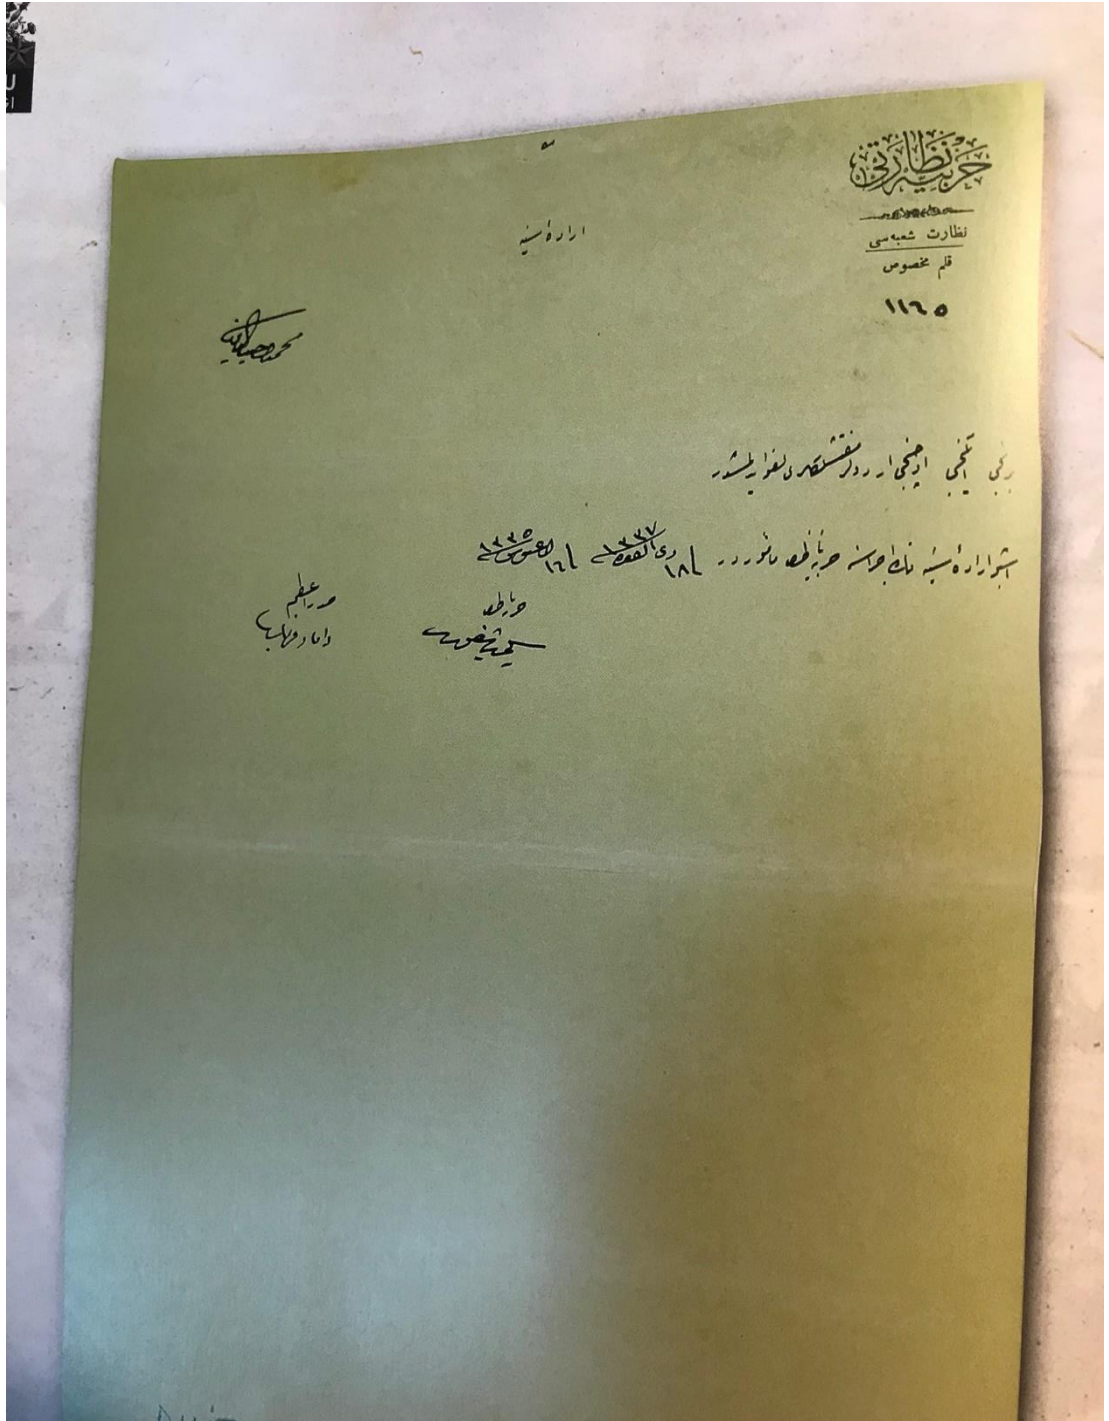 حربیه نظارتی
نظارت شعبه‌سی
قلم مخصوص
١١٦٥
ارادهٔ سنیه
محمد وحیدالدین
برنجی ایکنجی اوچنجی اردولر مفتشلكلری لغو ایدلمشدر
اشبو ارادهٔ سنیه‌نك اجراسنه حربیه ناظری مأموردر ١٨ ذی القعده ١٣٣٧ ١٦ اغستوس ١٣٣٥
حربیه ناظری
صدر اعظم
داماد فرید